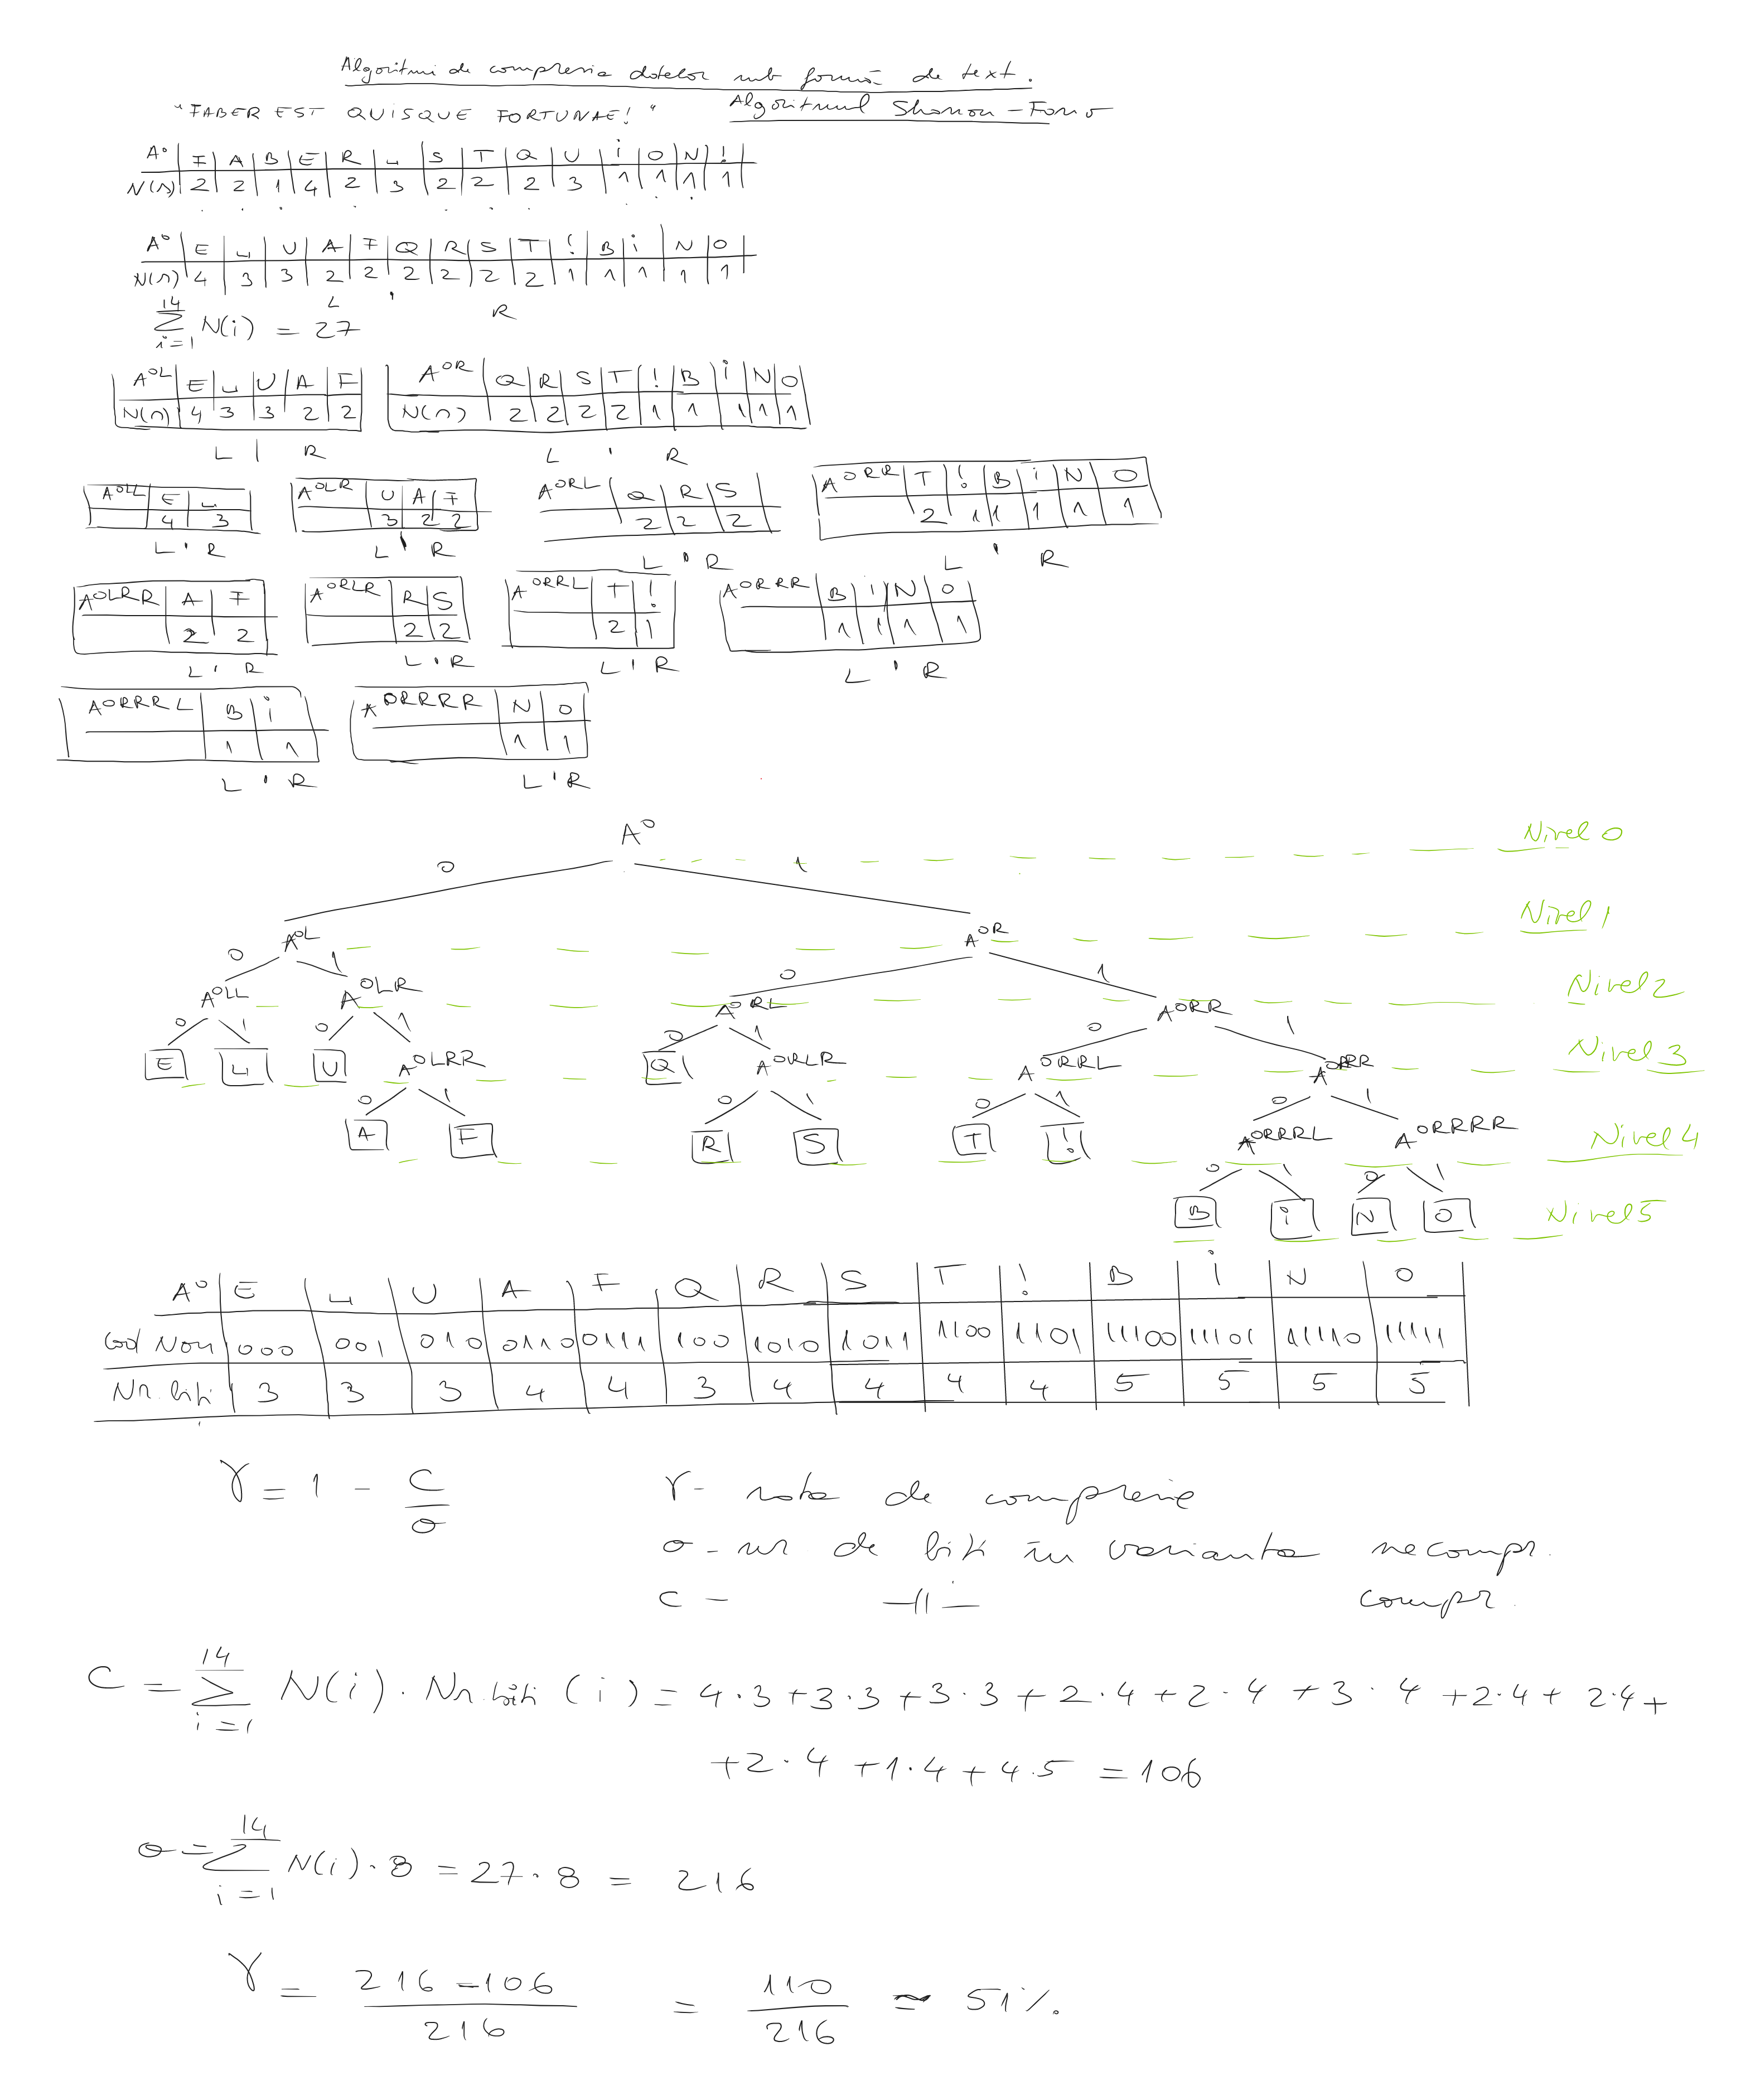 Algoritmi de compresia datelor sub formă de text.
"FABER EST QUISQUE FORTUNAE!" Algoritmul Shanon-Fano
A⁰ F A B E R ⌴ S T Q U i O N !
N(n) 2 2 1 4 2 3 2 2 2 3 1 1 1 1
A⁰ E ⌴ U A F Q R S T ! B i N O
N(n) 4 3 3 2 2 2 2 2 2 1 1 1 1 1
L ' R
14
Σ N(i) = 27
i=1
A^OL E ⌴ U A F A^OR Q R S T ! B i N O
N(n) 4 3 3 2 2 N(n) 2 2 2 2 1 1 1 1 1
L | R L ' R
A^OLL E ⌴ A^OLR U A F A^ORL Q R S A^ORR T ! B i N O
4 3 3 2 2 2 2 2 2 1 1 1 1 1
L ' R L ' R L ' R L ' R
A^OLRR A F A^ORLR R S A^ORRL T ! A^ORRR B i N O
2 2 2 2 2 1 1 1 1 1
L ' R L ' R L ' R L ' R
A^ORRRL B i A^ORRRR N O
1 1 1 1
L ' R L ' R
A⁰ Nivel 0
0 1
A^OL A^OR Nivel 1
0 1 0 1
A^OLL A^OLR A^ORL A^ORR Nivel 2
0 1 0 1 0 1 0 1
E ⌴ U A^OLRR Q A^ORLR A^ORRL A^ORRR Nivel 3
0 1 0 1 0 1 0 1
A F R S T ! A^ORRRL A^ORRRR Nivel 4
0 1 0 1
B i N O Nivel 5
A⁰ E ⌴ U A F Q R S T ! B i N O
Cod Nou 000 001 010 0110 0111 100 1010 1011 1100 1101 11100 11101 11110 11111
Nr. biti 3 3 3 4 4 3 4 4 4 4 5 5 5 5
γ = 1 - C/o
γ - rata de compresie
o - nr de biti în varianta necompr.
c - -//- compr.
14
C = Σ N(i) · Nr. biti (i) = 4·3+3·3+3·3+2·4+2·4+3·4+2·4+2·4+
i=1
+2·4+1·4+4·5 = 106
14
o = Σ N(i)·8 = 27·8 = 216
i=1
γ = 216-106/216 = 110/216 ≃ 51%.